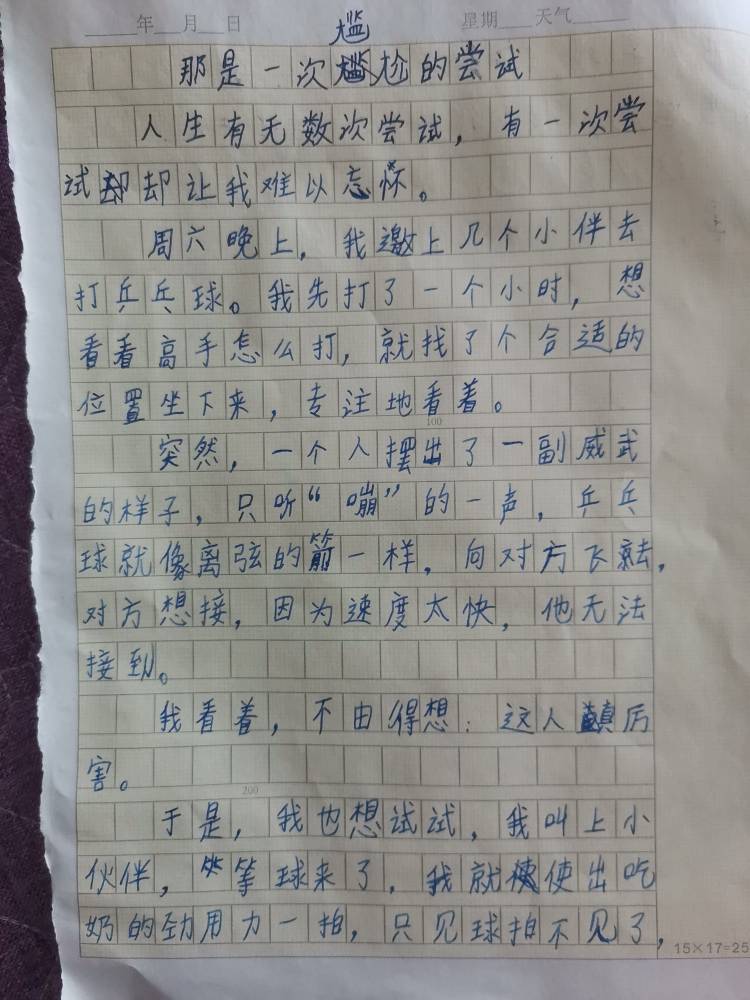 年 月 日 星期 天气
尴
那是一次尴尬的尝试
人生有无数次尝试，有一次尝
试却却让我难以忘怀。
周六晚上，我邀上几个小伴去
打乒乓球。我先打了一个小时，想
看看高手怎么打，就找了个合适的
位置坐下来，专注地看着。
100
突然，一个人摆出了一副威武
的样子，只听“嘣”的一声，乒乓
球就像离弦的箭一样，向对方飞去，
对方想接，因为速度太快，他无法
接到。
我看着，不由得想：这人真厉
害。
200
于是，我也想试试，我叫上小
伙伴，等球来了，我就使出吃
奶的劲用力一拍，只见球拍不见了，
15×17=25